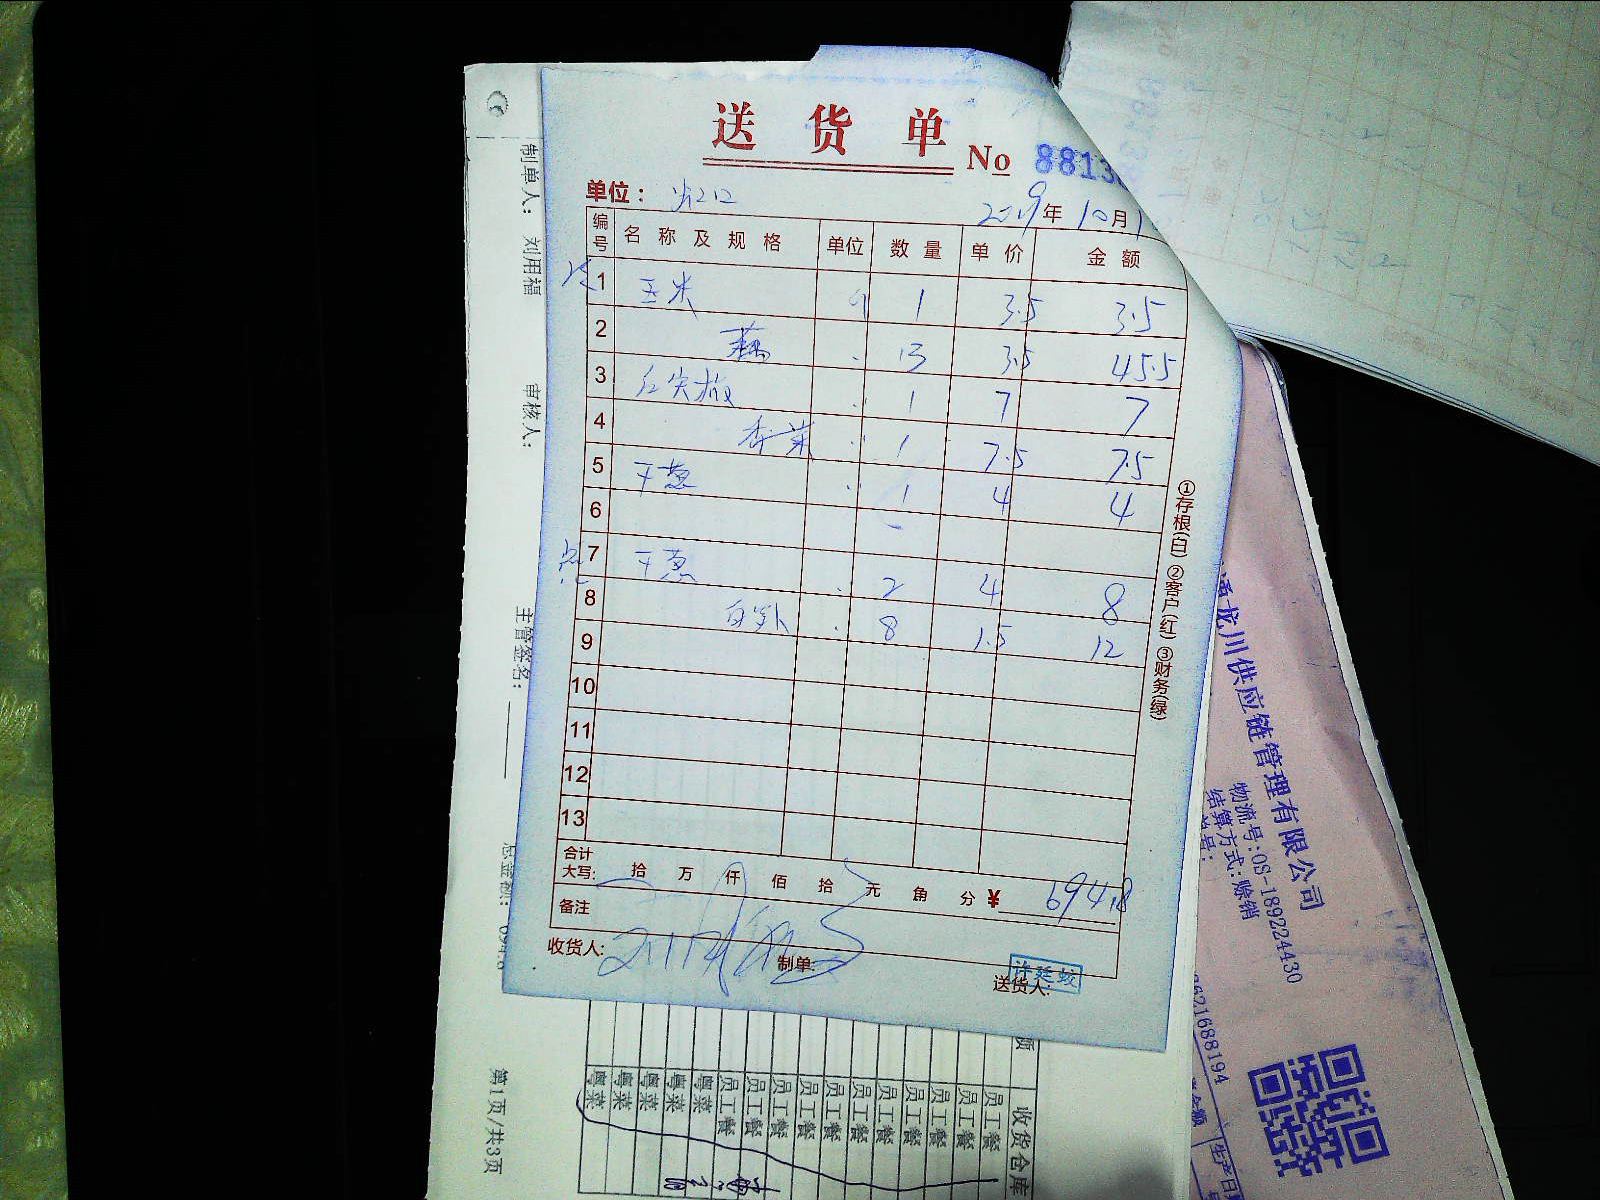 送货单 No 8813
单位：
2019年10月1
编号 名称及规格 单位 数量 单价 金额
1 玉米 1 3.5 3.5
2 藕 13 3.5 45.5
3 红尖椒 1 7 7
4 香菜 1 7.5 7.5
5 干葱 1 4 4
6
7 干葱 2 4 8
8 8 1.5 12
9
10
11
12
13
合计
大写: 拾 万 仟 佰 拾 元 角 分 ¥ 694.8
备注
收货人: 制单: 送货人:
许廷蛟
①存根(白) ②客户(红) ③财务(绿)
制单人: 刘用福
审核人:
主管签名:
总金额: 694.8
第1页/共3页
收货仓库
员工餐
员工餐
员工餐
员工餐
员工餐
员工餐
员工餐
员工餐
员工餐
员工餐
员工餐
粤菜
粤菜
粤菜
粤菜
粤菜
龙川供应链管理有限公司
物流号:OS-189224430
结算方式:赊销
单号:
862168194
金额
生产日